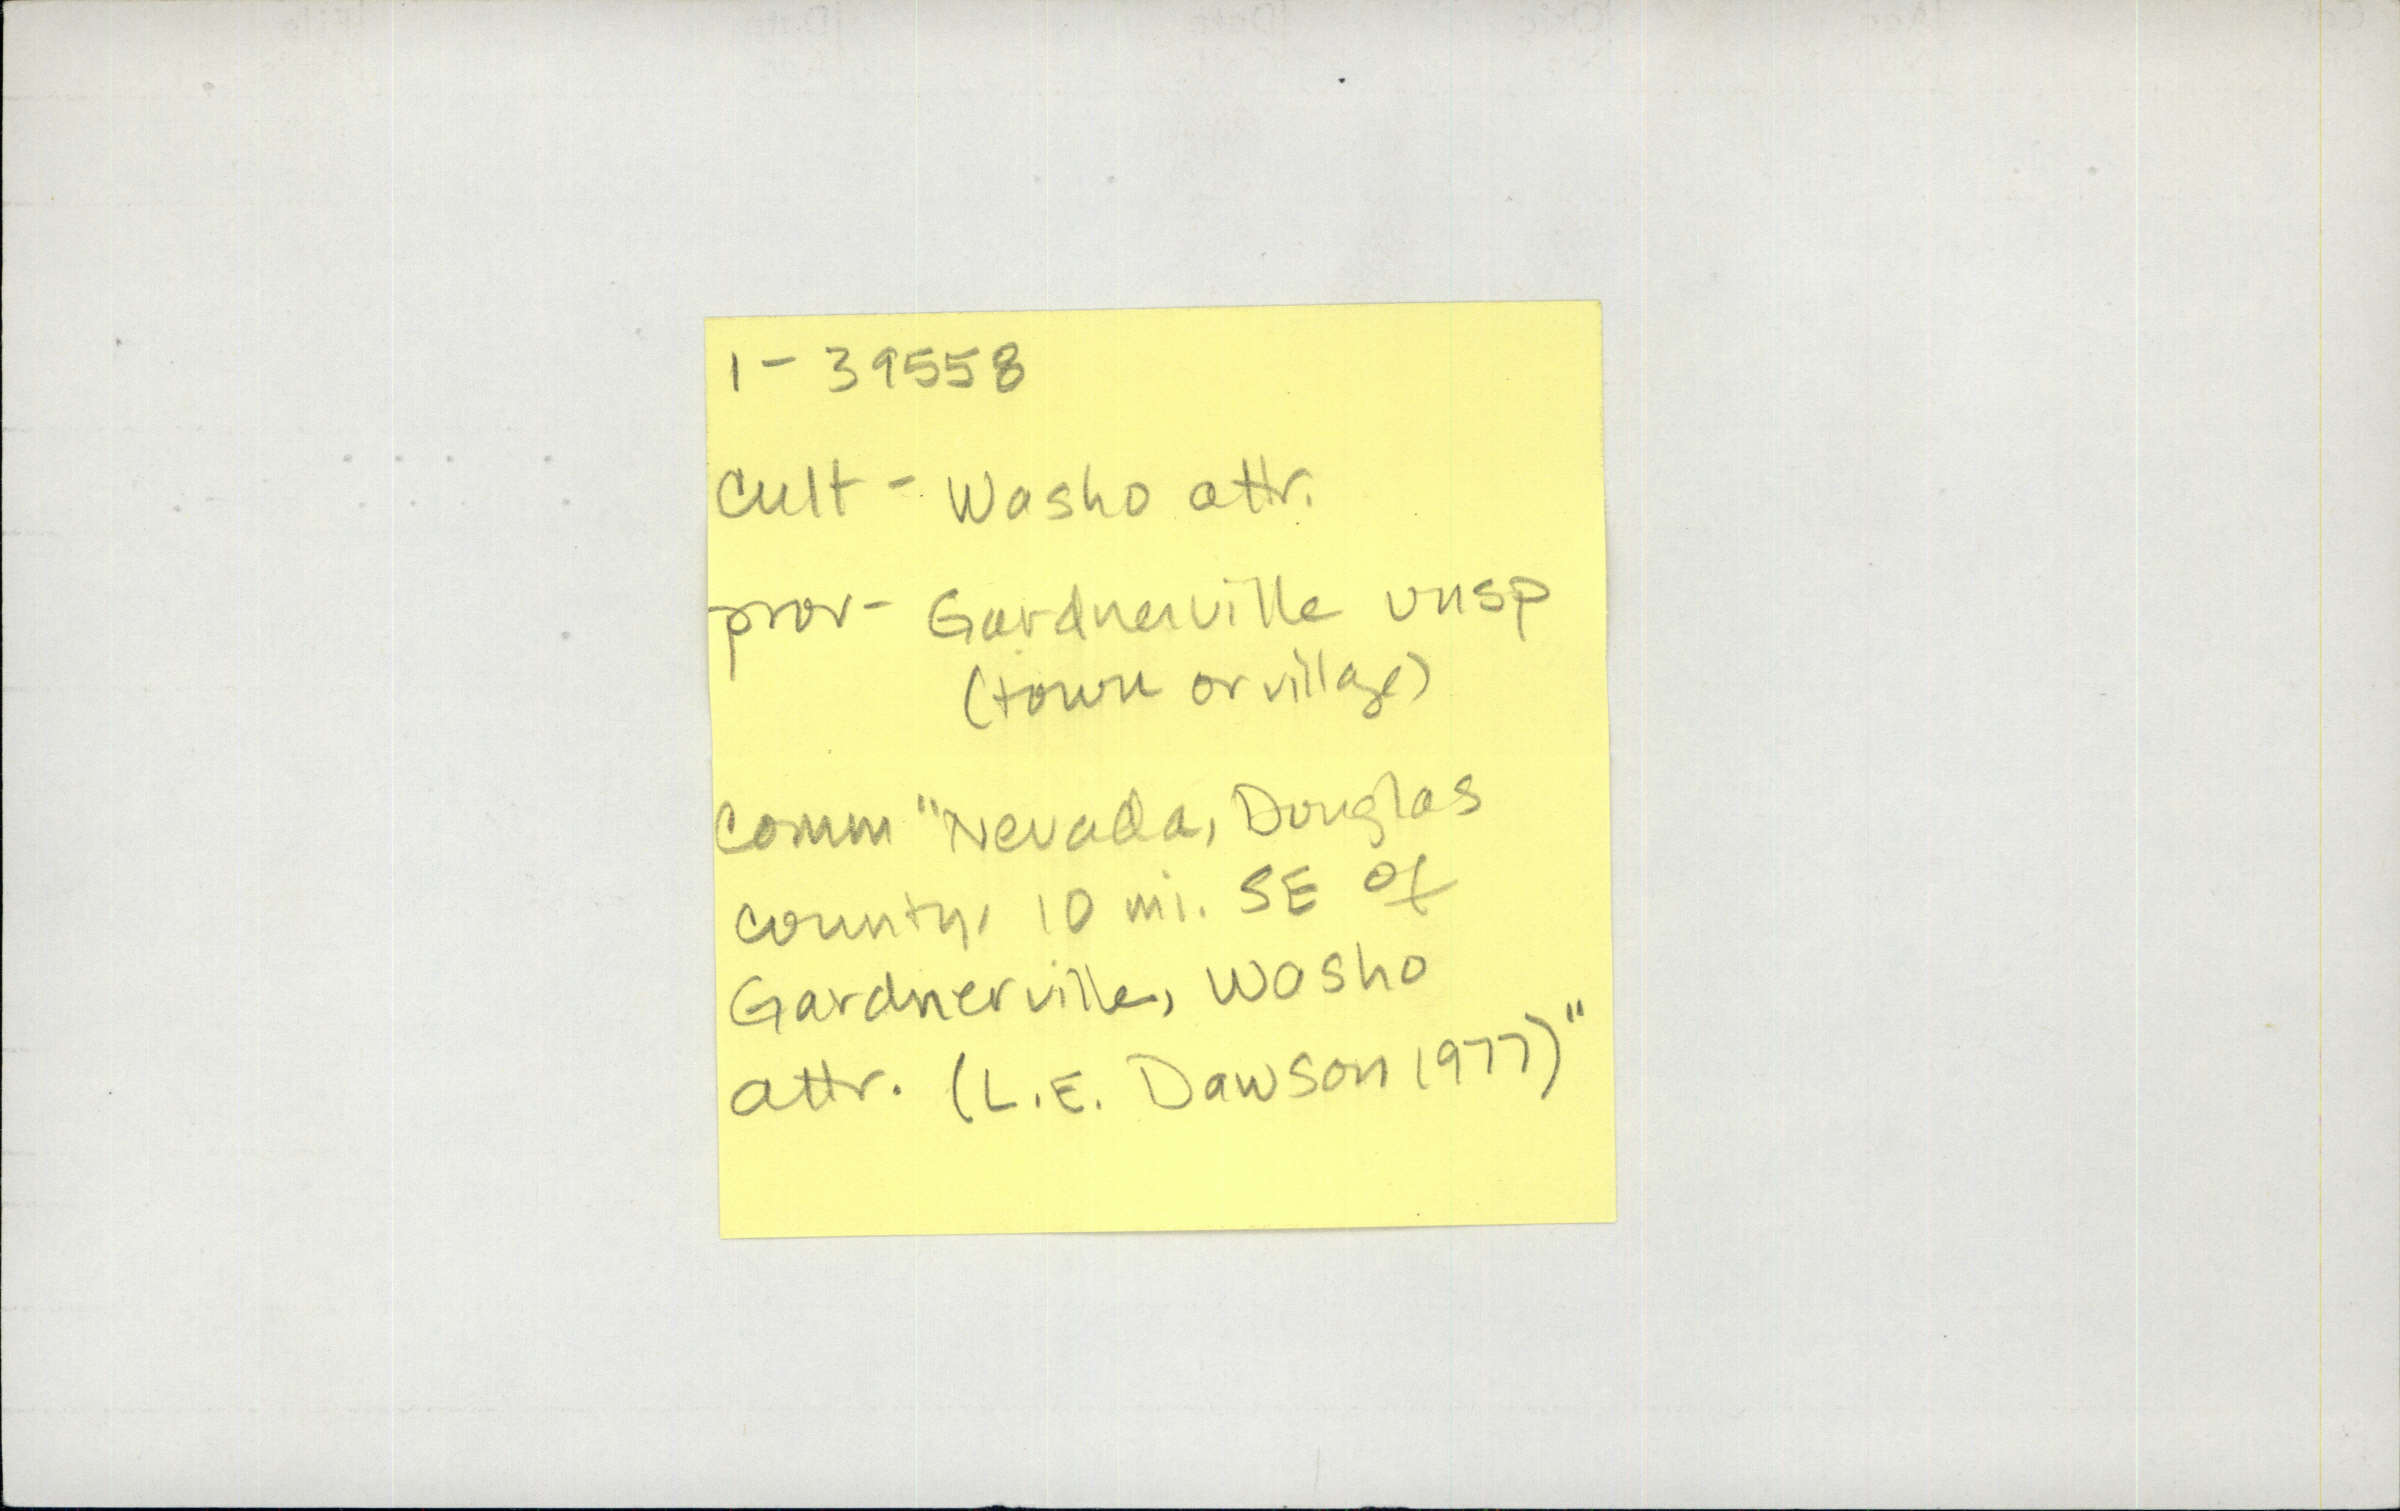 1-39558
Cult - Washo attr.
prov- Gardnerville unsp
(town or village)
Comm "Nevada, Douglas
County, 10 mi. SE of
Gardnerville, Washo
attr. (L.E. Dawson 1977)"